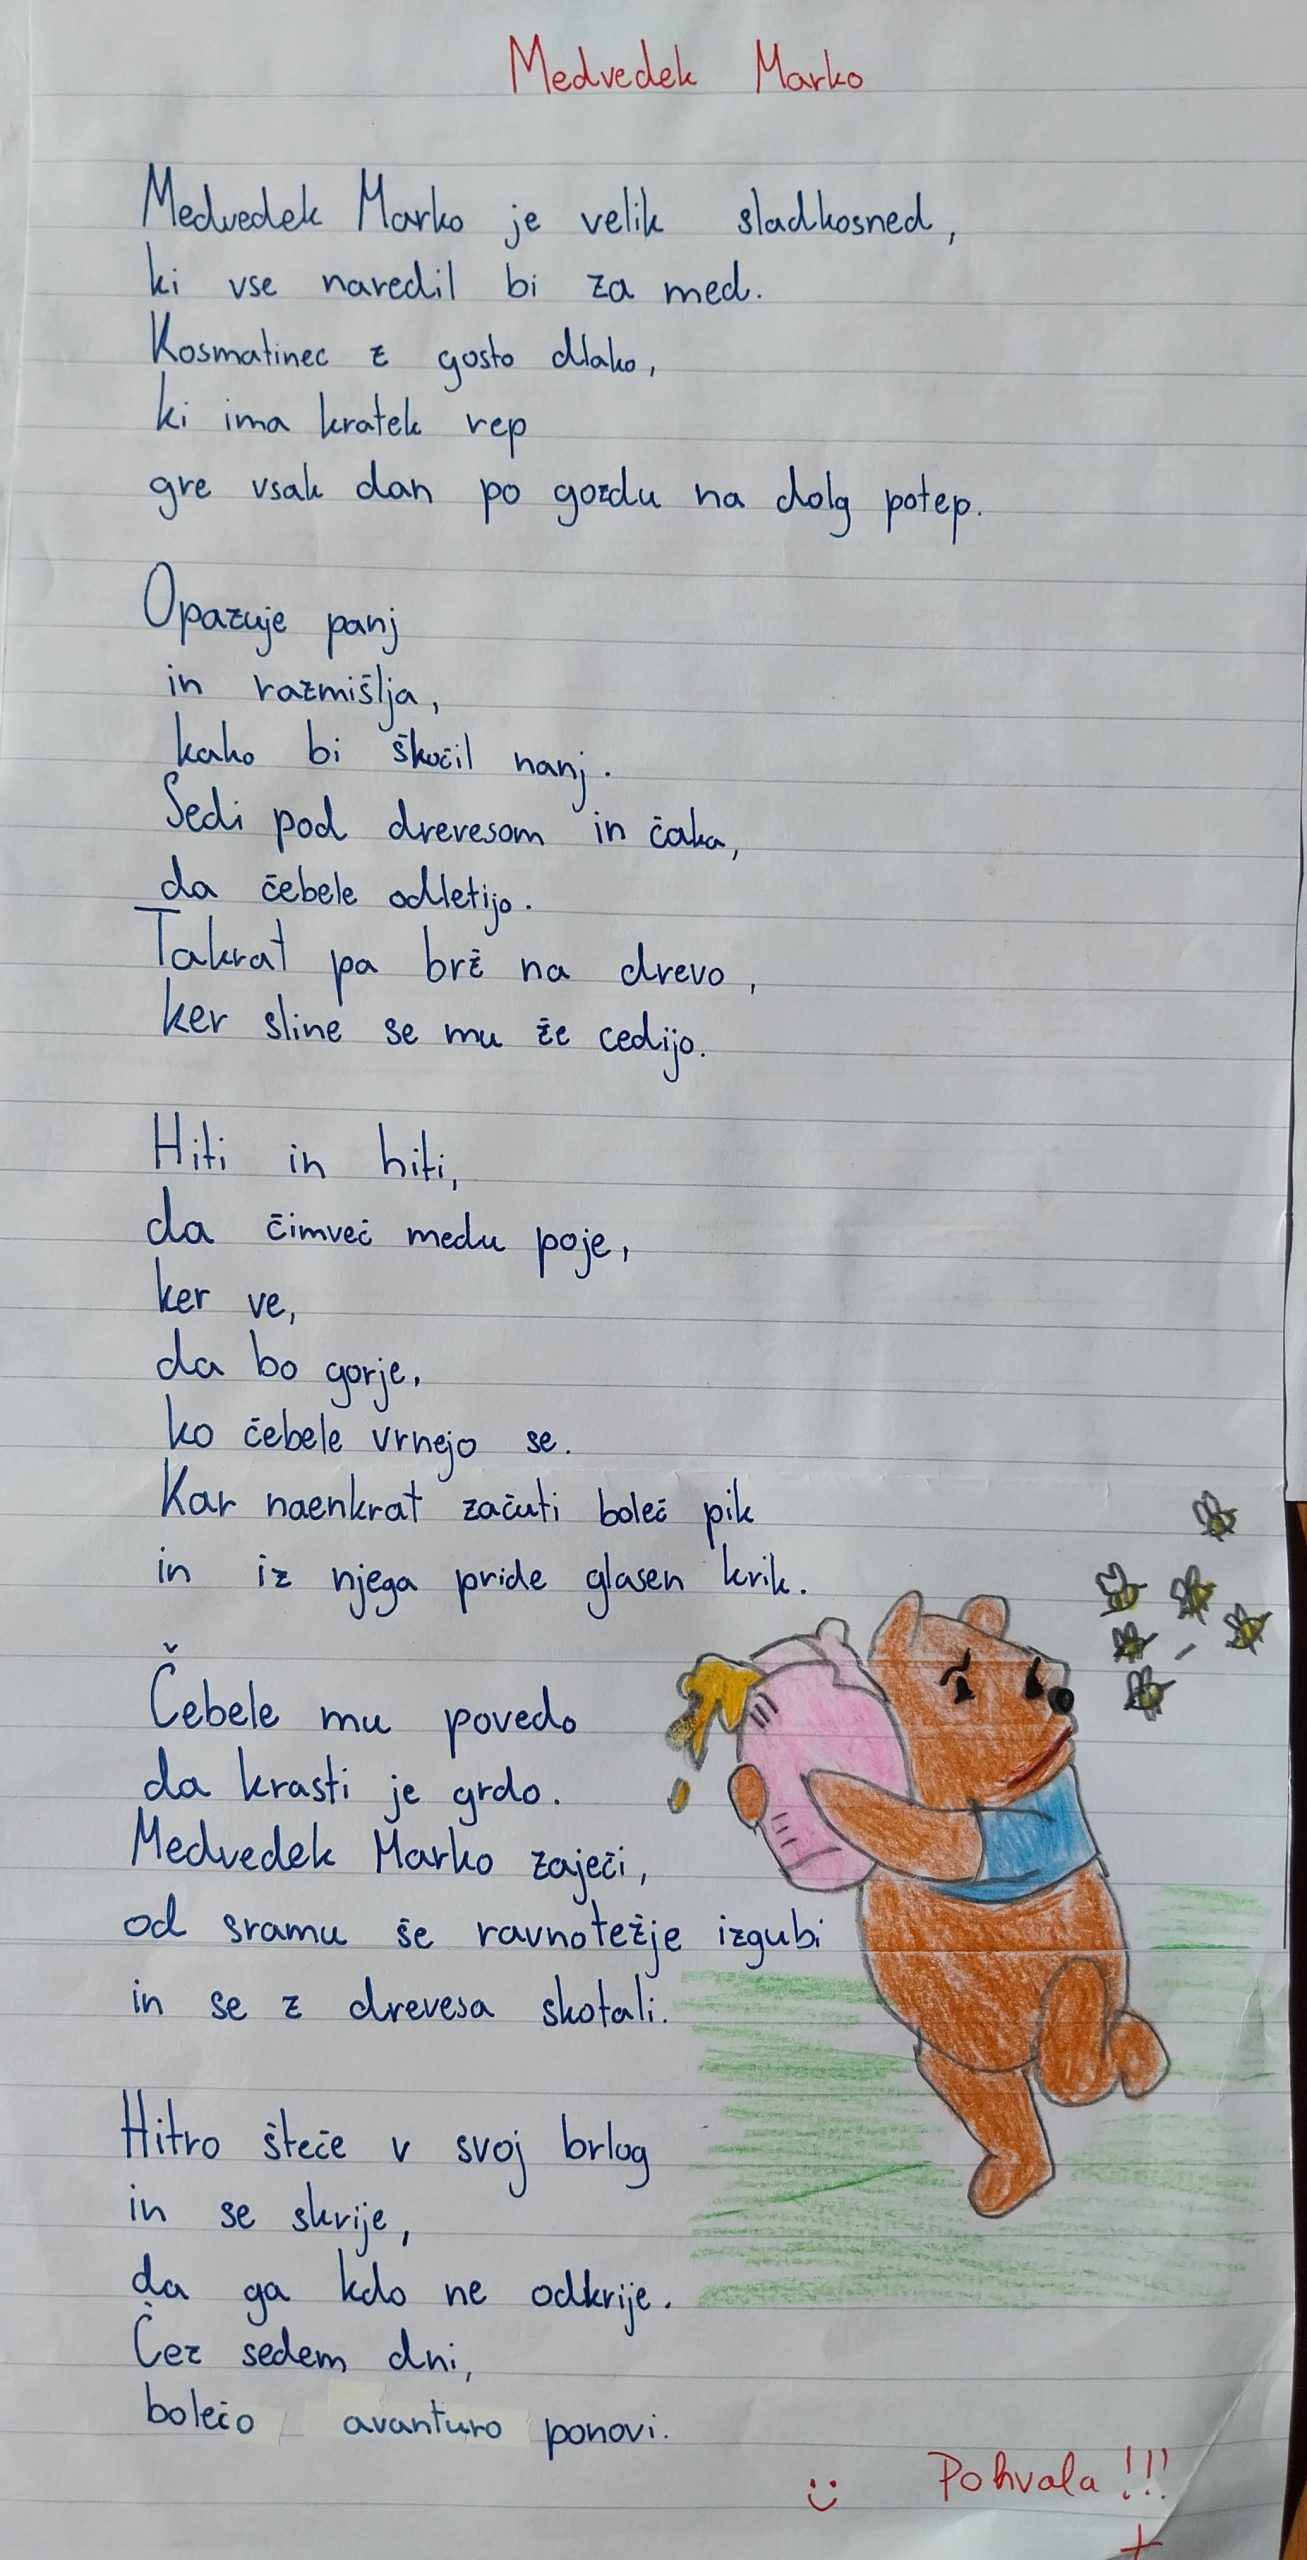 Medvedek Marko
Medvedek Marko je velik sladkosned,
ki vse naredil bi za med.
Kosmatinec z gosto dlako,
ki ima kratek rep
gre vsak dan po gozdu na dolg potep.
Opazuje panj
in razmišlja,
kako bi škočil nanj.
Sedi pod drevesom in čaka,
da čebele odletijo.
Takrat pa brž na drevo,
ker sline se mu že cedijo.
Hiti in hiti,
da čimveč medu poje,
ker ve,
da bo gorje,
ko čebele vrnejo se.
Kar naenkrat začuti boleč pik
in iz njega pride glasen krik.
Čebele mu povedo
da krasti je grdo.
Medvedek Marko zaječi,
od sramu še ravnotežje izgubi
in se z drevesa skotali.
Hitro šteče v svoj brlog
in se skrije,
da ga kdo ne odkrije.
Čez sedem dni,
bolečo avanturo ponovi.
Pohvala!!!